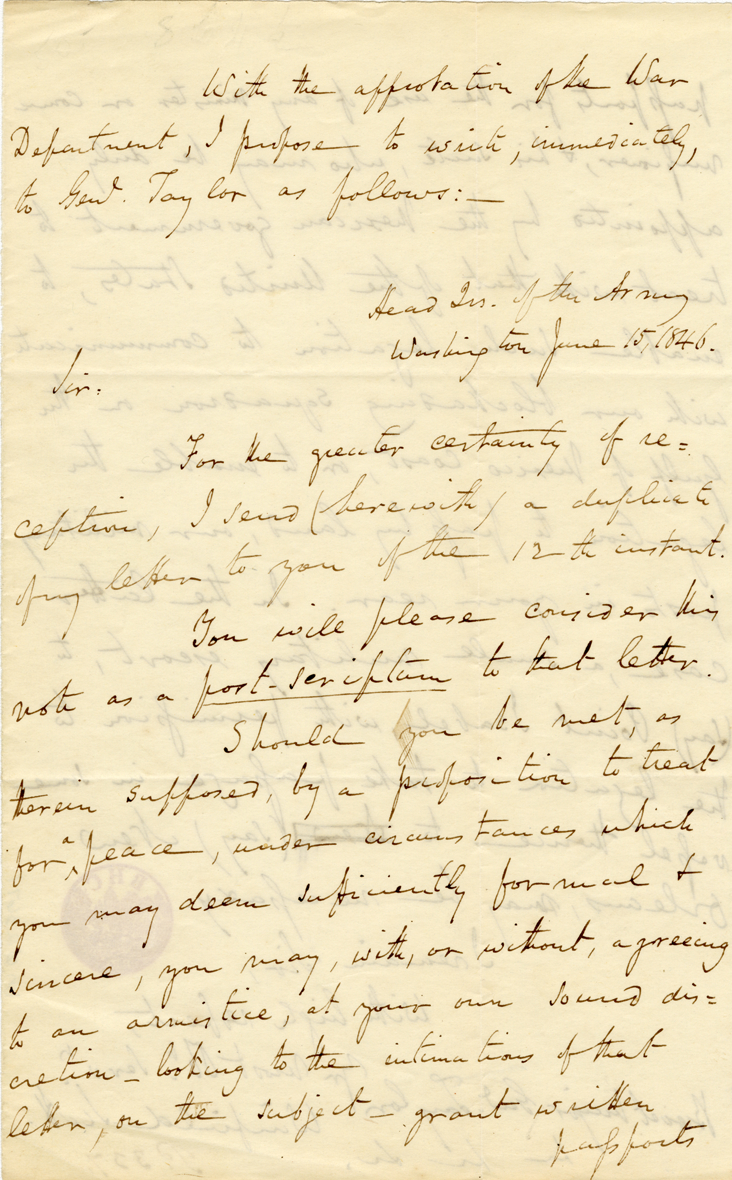 With the approbation of the War
Department, I propose to write, immediately,
to Genl. Taylor as follows:—
Head Qrs. of the Army
Washington June 15, 1846.
Sir:
For the greater certainty of re=
ception, I send (herewith) a duplicate
of my letter to you of the 12th instant.
You will please consider this
note as a post-scriptum to that letter.
Should you be met, as
therein supposed, by a proposition to treat
for a peace, under circumstances which
you may deem sufficiently formal &
sincere, you may, with, or without, agreeing
to an armistice, at your own sound dis=
cretion — looking to the intimations of that
letter, on the subject — grant written
passports